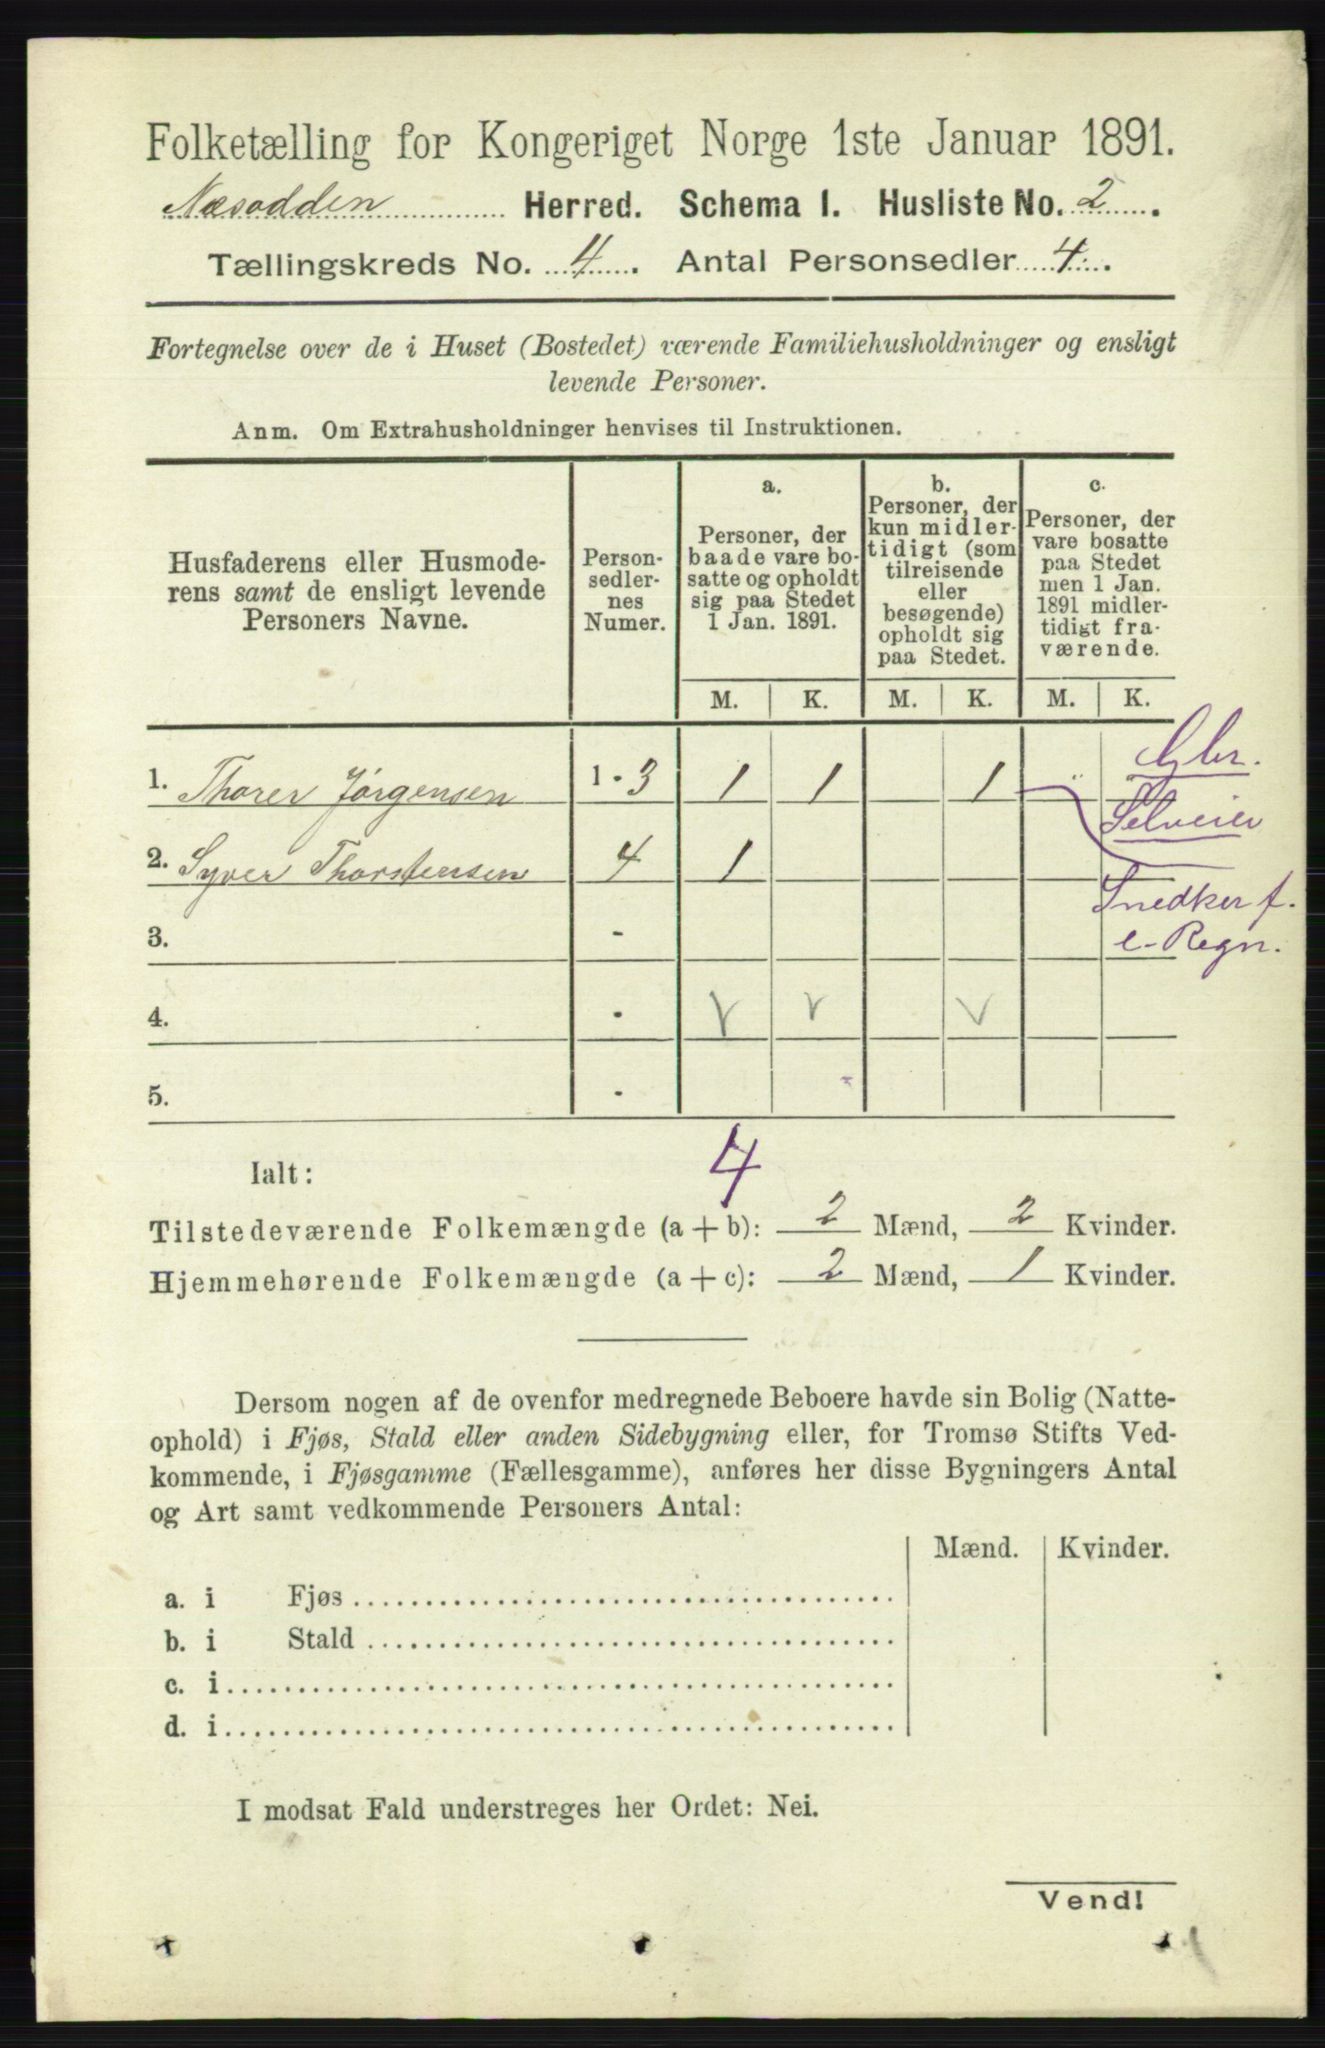 Folketælling for Kongeriget Norge 1ste Januar 1891.
Næsodden Herred. Schema I. Husliste No. 2.
Tællingskreds No. 4. Antal Personsedler 4.
Fortegnelse over de i Huset (Bostedet) værende Familiehusholdninger og ensligt
levende Personer.
Anm. Om Extrahusholdninger henvises til Instruktionen.
Husfaderens eller Husmode-
rens samt de ensligt levende
Personers Navne.
Person-
sedler-
nes
Numer.
a.
Personer, der
baade vare bo-
satte og opholdt
sig paa Stedet
1 Jan. 1891.
b.
Personer, der
kun midler-
tidigt (som
tilreisende
eller
besøgende)
opholdt sig
paa Stedet.
c.
Personer, der
vare bosatte
paa Stedet
men 1 Jan.
1891 midler-
tidigt fra-
værende.
M. K. M. K. M. K.
1. Thorer Jørgensen 1-3 1 1 1 Gbr.
Selveier
2. Syver Thorstensen 4 1
Snedker f.
e. Regn.
3. -
4. -
5. -
4
Ialt:
Tilstedeværende Folkemængde (a + b): 2 Mænd, 2 Kvinder.
Hjemmehørende Folkemængde (a + c): 2 Mænd, 1 Kvinder.
Dersom nogen af de ovenfor medregnede Beboere havde sin Bolig (Natte-
ophold) i Fjøs, Stald eller anden Sidebygning eller, for Tromsø Stifts Ved-
kommende, i Fjøsgamme (Fællesgamme), anføres her disse Bygningers Antal
og Art samt vedkommende Personers Antal:
Mænd. Kvinder.
a. i Fjøs
b. i Stald
c. i
d. i
I modsat Fald understreges her Ordet: Nei.
Vend!